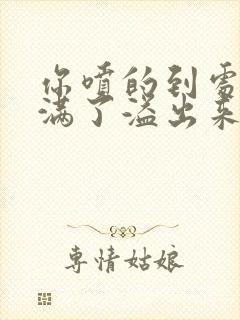 你喷的到需
满了溢出来
专情姑娘